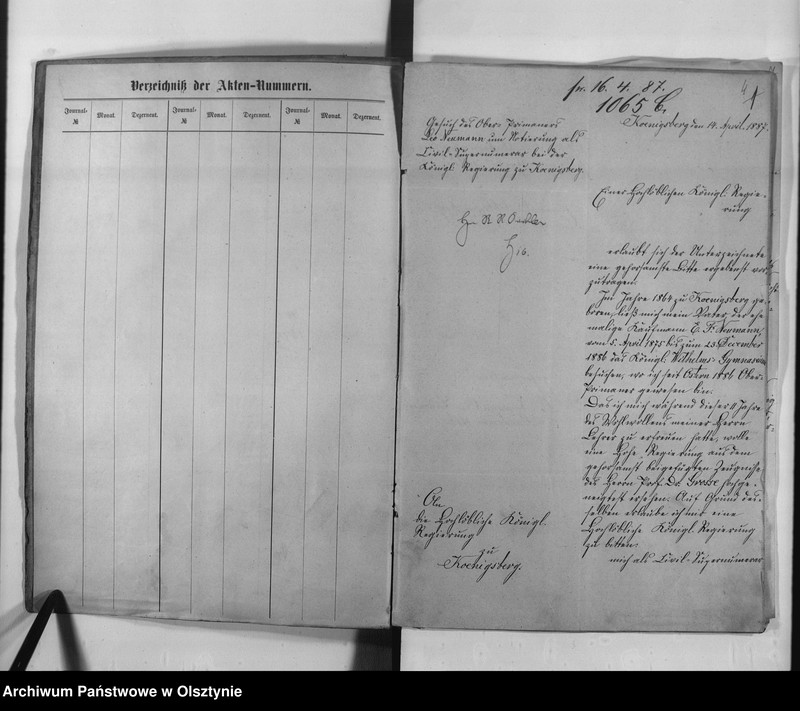 Verzeichniß der Akten-Nummern.
Journal- № Monat. Dezernent. Journal- № Monat. Dezernent. Journal- № Monat. Dezernent.
pr. 16. 4. 87.
1065 C.
Koenigsberg den 14. April 1887.
Gesuch des Ober-Primaners
Leo Neumann um Notierung als
Civil-Supernumerar bei der
Königl. Regierung zu Koenigsberg.
Einer Hochlöblichen Königl. Regie-
rung
erlaubt sich der Unterzeichnete
eine gehorsamste Bitte ergebenst vor-
zutragen.
Im Jahre 1864 zu Koenigsberg ge-
boren, ließ mich mein Vater, der ehe
malige Kaufmann C. F. Neumann,
vom 5. April 1875 bis zum 23. December
1886 das Königl. Wilhelms-Gymnasium
besuchen, wo ich seit Ostern 1886 Ober-
Primaner gewesen bin.
Das ich mich während dieser 11 Jahre
des Wohlwollens meiner Herrn
Lehrer zu erfreuen hatte, wolle
eine Hohe Regierung aus dem
gehorsamst beigefügten Zeugniße
des Herrn Prof. Dr. Grosse hochge-
neigtest ersehen. Auf Grund des-
selben erlaube ich mir eine
Hochlöbliche Königl. Regierung
zu bitten:
mich als Civil-Supernumerar
An
die Hochlöbliche Königl.
Regierung
zu
Koenigsberg.
Archiwum Państwowe w Olsztynie